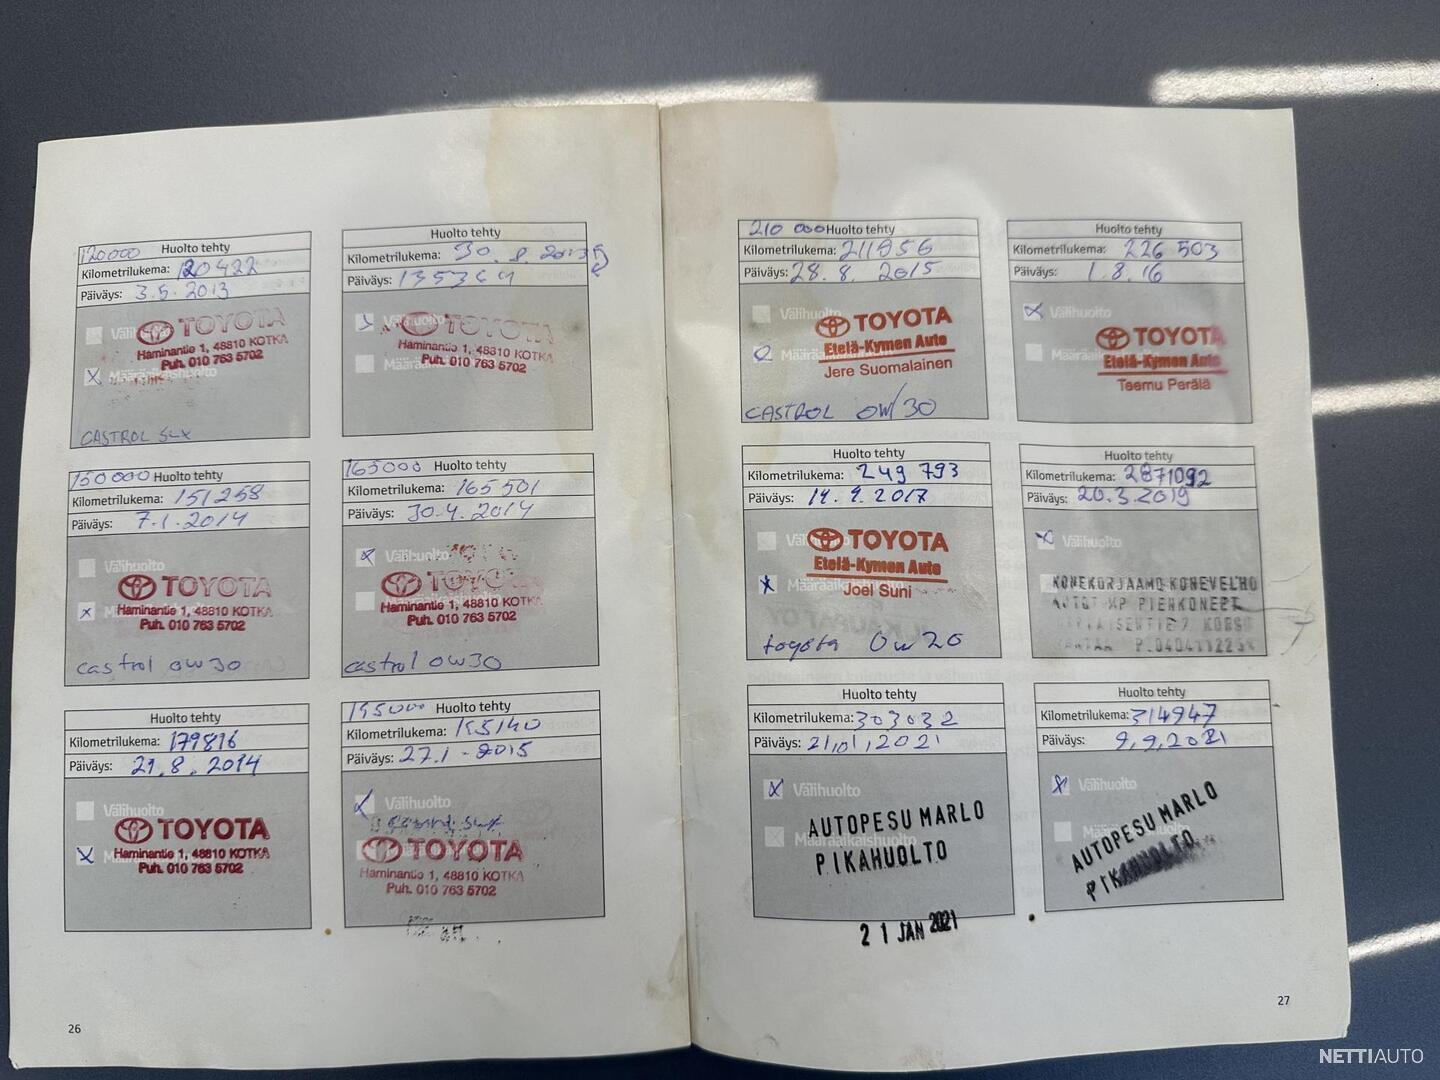 120000 Huolto tehty
Kilometrilukema: 120422
Päiväys: 3.5.2013
TOYOTA
Haminantie 1, 48810 KOTKA
Puh. 010 763 5702
Määräaikaishuolto
CASTROL SLX
Huolto tehty
Kilometrilukema: 30.8.2013
Päiväys: 135364
Välihuolto
TOYOTA
Haminantie 1, 48810 KOTKA
Puh. 010 763 5702
150000 Huolto tehty
Kilometrilukema: 151258
Päiväys: 7.1.2014
Välihuolto
TOYOTA
Haminantie 1, 48810 KOTKA
Puh. 010 763 5702
castrol 0w30
165000 Huolto tehty
Kilometrilukema: 165501
Päiväys: 30.4.2014
Välihuolto
TOYOTA
Haminantie 1, 48810 KOTKA
Puh. 010 763 5702
castrol 0w30
Huolto tehty
Kilometrilukema: 179816
Päiväys: 21.8.2014
Välihuolto
TOYOTA
Haminantie 1, 48810 KOTKA
Puh. 010 763 5702
195000 Huolto tehty
Kilometrilukema: 195140
Päiväys: 27.1-2015
Välihuolto
TOYOTA
Haminantie 1, 48810 KOTKA
Puh. 010 763 5702
26
210 000 Huolto tehty
Kilometrilukema: 211956
Päiväys: 28.8.2015
Välihuolto
TOYOTA
Etelä-Kymen Auto
Jere Suomalainen
CASTROL 0W/30
Huolto tehty
Kilometrilukema: 226 503
Päiväys: 1.8.16
Välihuolto
TOYOTA
Etelä-Kymen Auto
Teemu Perälä
Huolto tehty
Kilometrilukema: 249 793
Päiväys: 14.9.2017
TOYOTA
Etelä-Kymen Auto
Määräaikaishuolto
Joel Suni
toyota 0w20
Huolto tehty
Kilometrilukema: 2871092
Päiväys: 20.3.2019
Välihuolto
KONEKORJAAMO KONEVELHO
AUTOT MP PIENKONEET
P.0404112258
Huolto tehty
Kilometrilukema: 303032
Päiväys: 21,01,2021
Välihuolto
AUTOPESU MARLO
Määräaikaishuolto
PIKAHUOLTO
21 JAN 2021
Huolto tehty
Kilometrilukema: 314947
Päiväys: 9,9,2021
Välihuolto
AUTOPESU MARLO
PIKAHUOLTO
27
NETTIAUTO